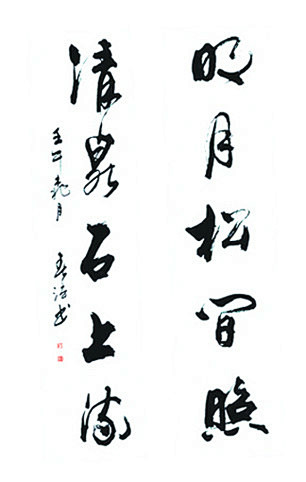 明月松间照
清泉石上流
壬午 月
书